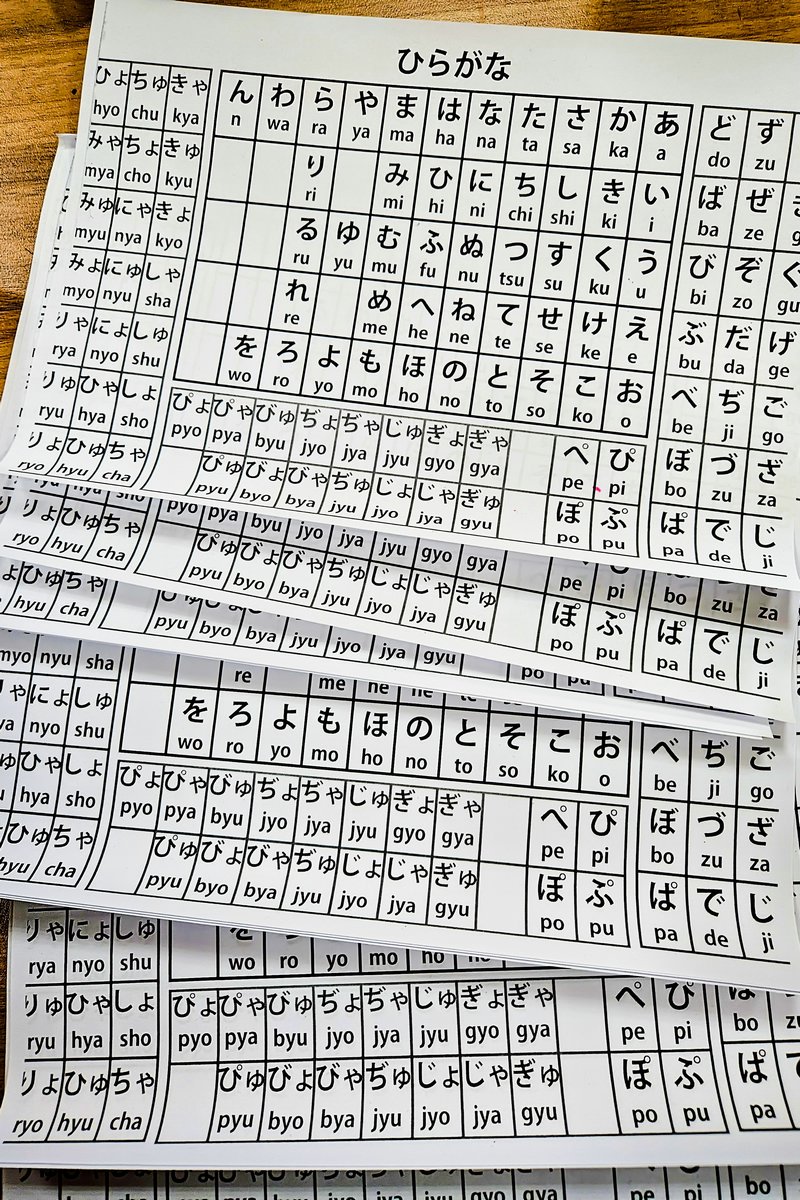 ひらがな
ひょ ちゅ きゃ
hyo chu kya
みゃ ちょ きゅ
mya cho kyu
みゅ にゃ きょ
myu nya kyo
みょ にゅ しゃ
myo nyu sha
りゃ にょ しゅ
rya nyo shu
りゅ ひゃ しょ
ryu hya sho
りょ ひゅ ちゃ
ryo hyu cha
ん わ ら や ま は な た さ か あ
n wa ra ya ma ha na ta sa ka a
り み ひ に ち し き い
ri mi hi ni chi shi ki i
る ゆ む ふ ぬ つ す く う
ru yu mu fu nu tsu su ku u
れ め へ ね て せ け え
re me he ne te se ke e
を ろ よ も ほ の と そ こ お
wo ro yo mo ho no to so ko o
ぴょ ぴゃ びゅ ぢょ ぢゃ じゅ ぎょ ぎゃ ぺ ぴ
pyo pya byu jyo jya jyu gyo gya pe pi
ぴゅ びょ びゃ ぢゅ じょ じゃ ぎゅ ぽ ぷ
pyu byo bya jyu jyo jya gyu po pu
ど ず
do zu
ば ぜ
ba ze
び ぞ ぐ
bi zo gu
ぶ だ げ
bu da ge
べ ぢ ご
be ji go
ぼ づ ざ
bo zu za
ぱ で じ
pa de ji
pyo pya byu jyo jya jyu gyo gya pe pi bo zu za
りょ ひゅ ちゃ ぴゅ びょ びゃ ぢゅ じょ じゃ ぎゅ ぽ ぷ ぱ で じ
ryo hyu cha pyu byo bya jyu jyo jya gyu po pu pa de ji
ひゅ ちゃ
hyu cha pyu byo bya jyu jyo jya gyu po pu
myo nyu sha re me he ne te
にょ しゅ を ろ よ も ほ の と そ こ お べ ぢ ご
nyo shu wo ro yo mo ho no to so ko o be ji go
ひゃ しょ ぴょ ぴゃ びゅ ぢょ ぢゃ じゅ ぎょ ぎゃ ぺ ぴ ぼ づ ざ
hya sho pyo pya byu jyo jya jyu gyo gya pe pi bo zu za
ひゅ ちゃ ぴゅ びょ びゃ ぢゅ じょ じゃ ぎゅ ぽ ぷ ぱ で じ
hyu cha pyu byo bya jyu jyo jya gyu po pu pa de ji
りゃ にょ しゅ
rya nyo shu wo ro yo mo ho no
りゅ ひゃ しょ ぴょ ぴゃ びゅ ぢょ ぢゃ じゅ ぎょ ぎゃ ぺ ぴ ぼ
ryu hya sho pyo pya byu jyo jya jyu gyo gya pe pi bo
りょ ひゅ ちゃ ぴゅ びょ びゃ ぢゅ じょ じゃ ぎゅ ぽ ぷ ぱ
ryo hyu cha pyu byo bya jyu jyo jya gyu po pu pa